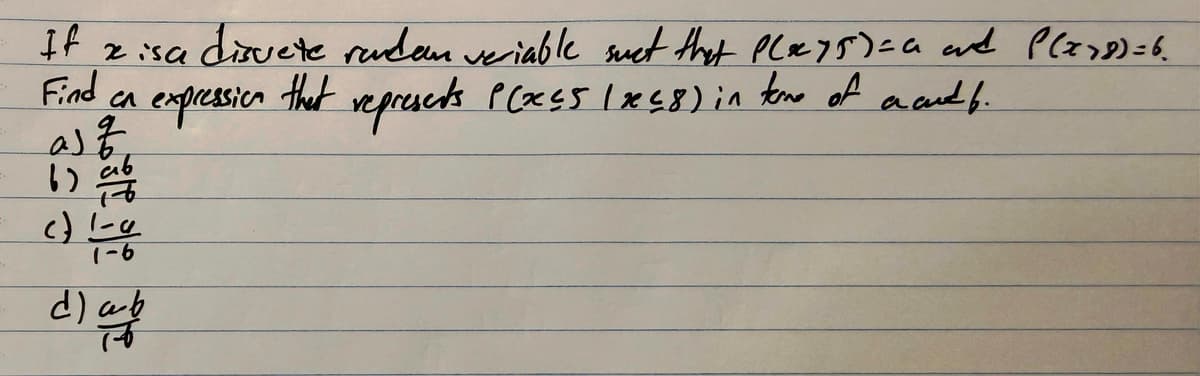 If x is a discrete random variable such that P(x>5)=a and P(x>8)=b.
Find an expression that represents P(x≤5 | x≤8) in terms of a and b.
a) a/b
b) ab/1-b
c) 1-a/1-b
d) a-b/1-b